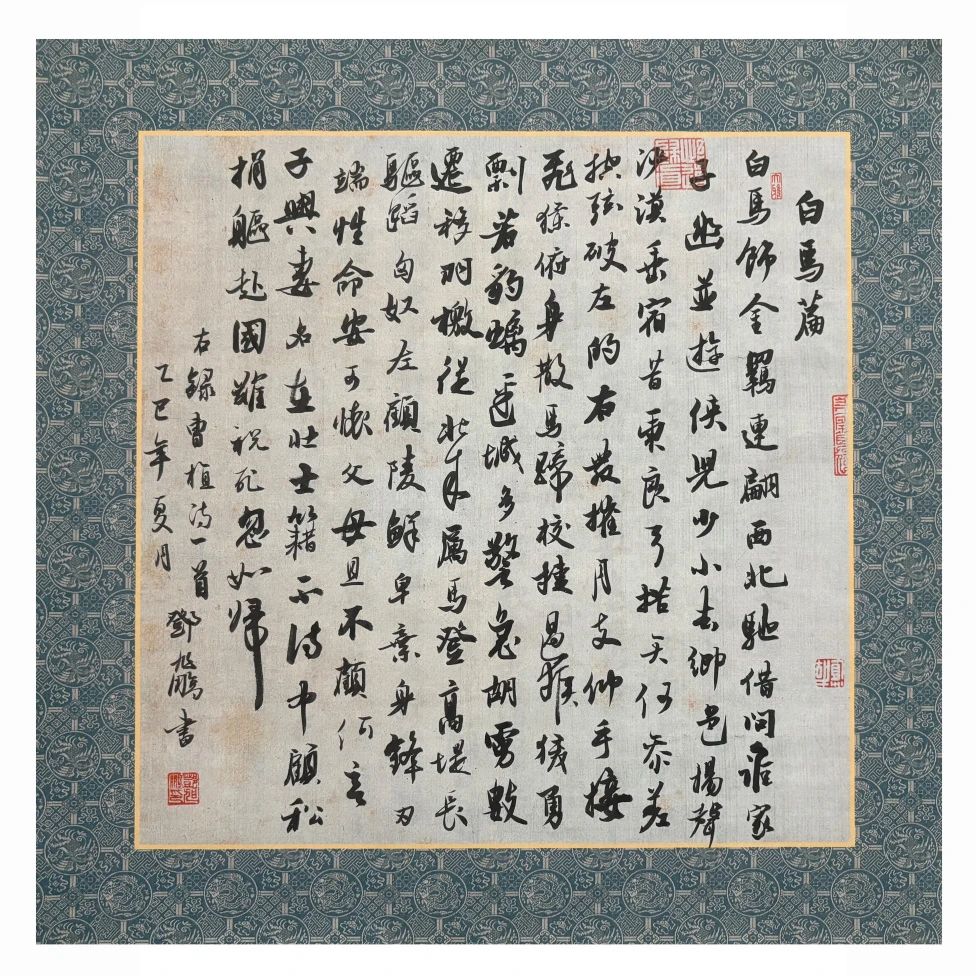 白馬篇
白馬飾金羈連翩西北馳借問誰家
子幽並遊俠兒少小去鄉邑揚聲
沙漠垂宿昔秉良弓楛矢何參差
控弦破左的右發摧月支仰手接
飛猱俯身散馬蹄校捷過猴猨勇
剽若豹螭邊城多警急胡虜數
遷移羽檄從北來厲馬登高堤長
驅蹈匈奴左顧陵鮮卑棄身鋒刃
端性命安可懷父母且不顧何言
子與妻名在壯士籍不得中顧私
捐軀赴國難視死忽如歸
右錄曹植詩一首鄧鵬书
乙巳年夏月